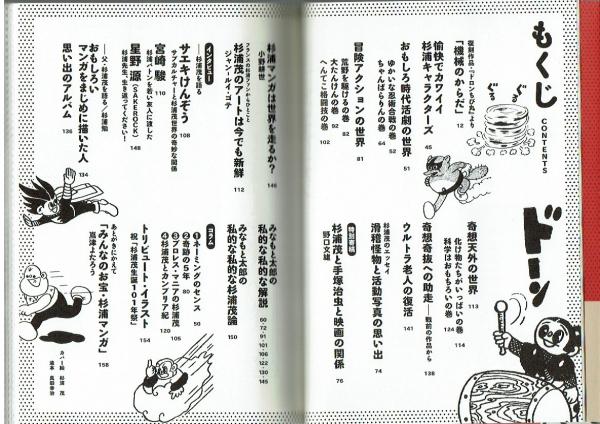 もくじ
CONTENTS
復刻作品「ドロンちび丸」より
「機械のからだ」 12
愉快でカワイイ
杉浦キャラクターズ 45
おもしろ時代活劇の世界 51
ゆかいな忍術合戦の巻 52
ちゃんばらりんの巻 64
冒険アクションの世界 81
荒野を駆けるの巻 82
大たんけんの巻 92
へんてこ格闘技の巻 102
ドーン
奇想天外の世界 113
化け物たちがいっぱいの巻 114
科学はおもちろいの巻 124
奇想奇抜への助走――戦前の作品から 138
ウルトラ老人の復活 141
杉浦茂のエッセイ
滑稽怪物と活動写真の思い出 74
特別寄稿
杉浦茂と手塚治虫と映画の関係 76
野口文雄
杉浦マンガは世界を走るか? 146
小野耕世
フランスの杉浦ファンからひとこと
杉浦茂のアートは今でも新鮮 112
ジャン=ルイ・コテ
インタビュー
――杉浦茂を語る
サエキけんぞう 108
サブカルチャーと杉浦茂世界の奇妙な関係
宮崎 駿 110
杉浦バトンを若い友人に渡した
星野 源(SAKEROCK) 148
杉浦先生、生き返ってください!
――父・杉浦茂を語る/杉浦勉
おもしろい
マンガをまじめに描いた人 134
思い出のアルバム 136
みなもと太郎の
私的な私的な解説
60
72
91
101
106
122
130
145
みなもと太郎の
私的な私的な杉浦茂論 150
コラム
❶ネーミングのセンス 50
❷奇跡の5年 80
❸プロレス・マニアの杉浦茂 105
❹杉浦茂とカンブリア紀 120
トリビュート・イラスト
祝「杉浦茂生誕101年祭」 154
あとがきにかえて
「みんなのお宝・杉浦マンガ」 158
嵩津よたろう
カバー絵 杉浦 茂